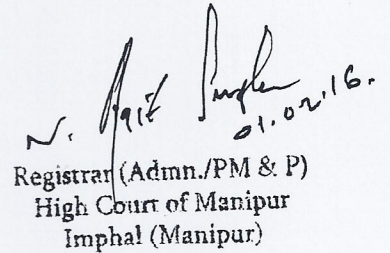 N. Ajit Singh
01.02.16.
Registrar (Admn./PM & P)
High Court of Manipur
Imphal (Manipur)